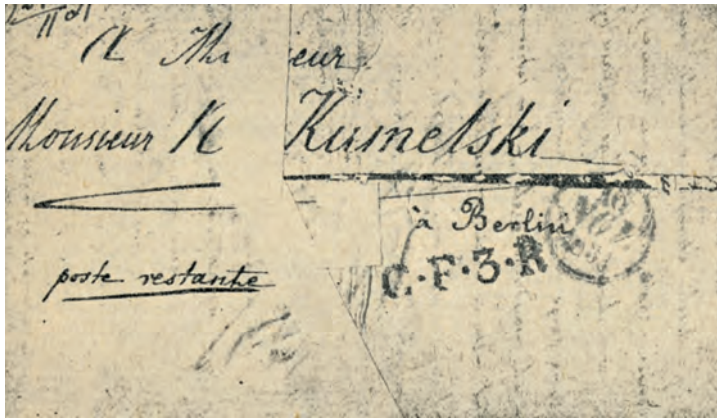 A Mo ieur
Monsieur N Kumelski
à Berlin
C.F.3.R
poste restante